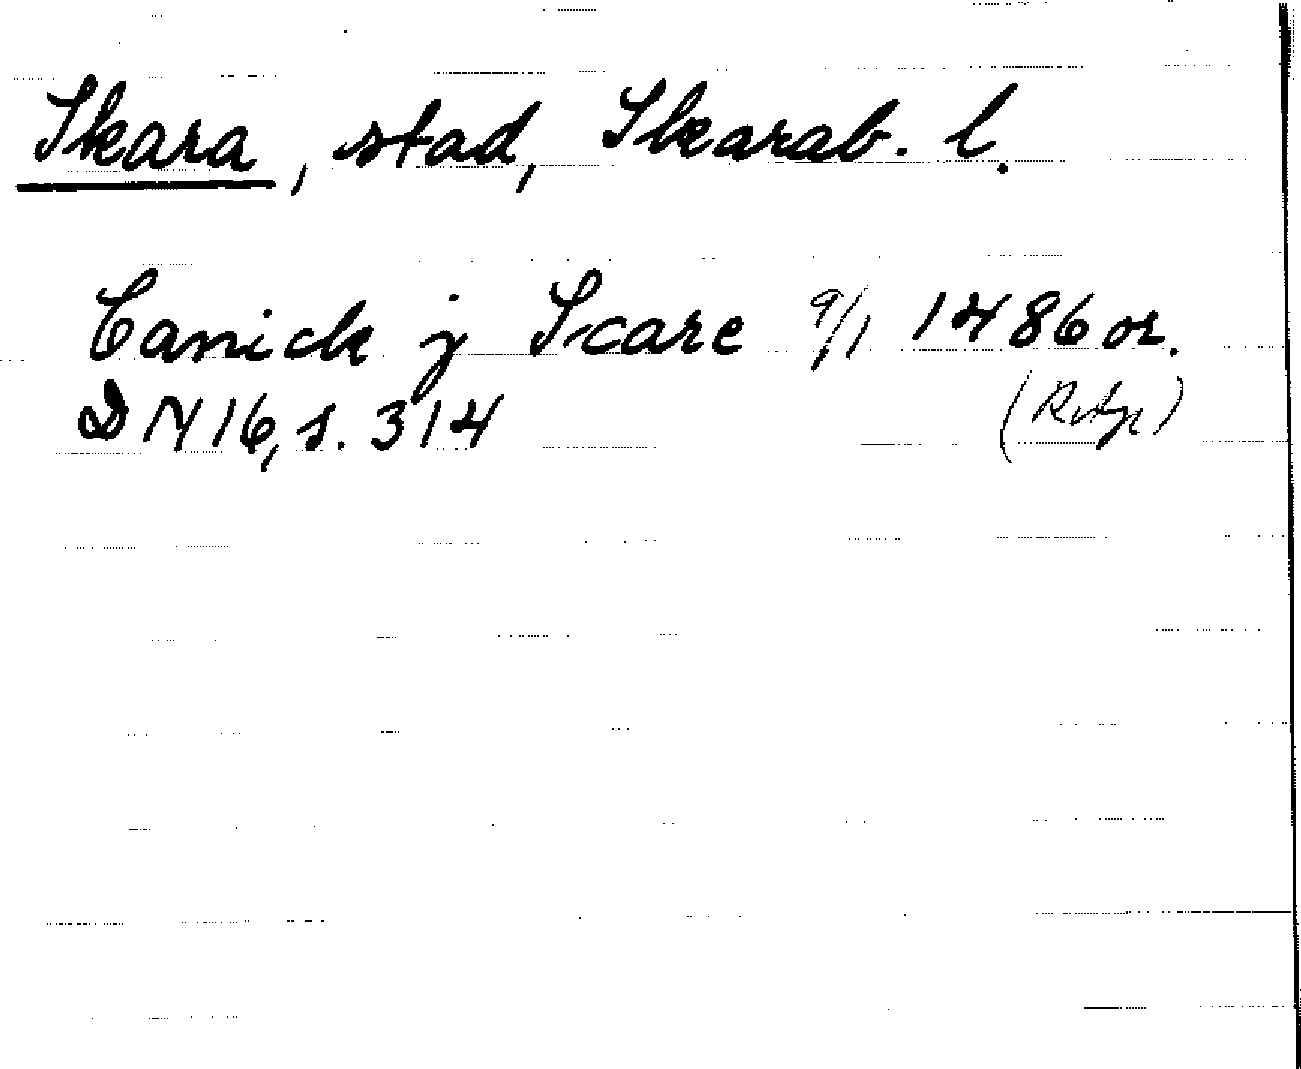 Skara, stad, Skarab. l.
Canick j Scare 9/1 1486 or.
DN 16, s. 314